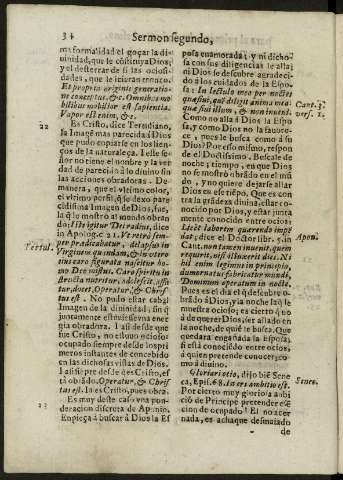 34 Sermon segundo,
ma formalidad el goçar la di-
uinidad, que le cõstituya Dios;
y el desterrar de si las ociosi-
dades, que le izieran tronco.
Et proprio originis generatio-
ne conceptus, &c. Omnibus mo
bilibus mobilior est sapientia.
Vapor est enim, &c.
22 Es Cristo, dice Tertuliano,
la Imagẽ mas parecida á Dios
que pudo copiarse en los lien-
ços de la naturaleça. I esse se-
ñor no tiene el nombre y la ver
dad de parecido á lo diuino sin
las acciones obradoras. De-
manera, que el vltimo color,
el vltimo perfil, q̃ se dexo pare
cidissima Imagen de Dios, fue,
la q̃ le mostró al mundo obran
do: Iste igitur Dei radius, dice
in Apolog. c. 21. Vt retrò sem-
Tertul. per prædicabatur, delapso in
Virginem quandam, & in vtero
eius caro figurata nascitur ho-
mo Deo mistus. Caro spiritu in
structa nutritur, adolescit, affa-
tur, docet, Operatur, & Chris-
tus est. No pudo estar cabal
Imagen de la diuinidad, sin q̃
juntamente estuuiesse en ener
gia obradora. I asi desde que
fue Cristo, no estuuo ocioso;
ocupado siempre desde los pri
meros instantes de concebido
en las dichosas vistas de Dios.
I asi siẽpre desde q̃ es Cristo, es
tà obrãdo. Operatur, & Chris
tus est. Ia es Cristo, pues obra.
23 Es muy deste caso vna pon-
deracion discreta de Aponio.
Empieça à buscar à Dios la Es
posa enamorada; y ni dicho-
sa con sus diligencias le alla;
ni Dios se descubre agradeci-
do á los cuidados de la Espo-
sa: In lectulo meo per noctes
quæsiui, quē diligit anima mea
Cant. 3. quæsiui illum, & non inueni.
vers. 1. Como no alla á Dios la Espo
sa, y como Dios no la fauore-
ce, pues le busca como á su
Dios? Por esso mismo, respon
de el Doctissimo. Buscale de
noche; tiempo, en que Dios no
se mostro obrãdo en el mũ-
do, y no quiere dejarse allar
Dios en ese tiẽpo. Que es con
tra la grãdeza diuina, estar co-
nocido por Dios, y estar junta
mente conocido entre ocios:
Licèt laborem quærendi impẽ
dat, dice el Doctor lib. 5. in
Apon. Cant. non tamen inuenit, quem
requirit, nisi illuxerit dies. Ni
hil enim legimus in principio,
dum ornatur fabricatur mundi,
Dominum operatum in nocte.
Pues es el dia el q̃ descubre o-
brãdo à Dios, y la noche la q̃ le
muestra ocioso; es cierto q̃ no
á de querer Dios, ser allado en
la noche, de quiẽ le busca. Que
quedara engañada la Esposa,
si està conocido entre ocios,
á quien pretende conocer; co-
mo á diuino.
Gloriari otio, dijo biẽ Sene
Senec. ca, Epist. 68. Iners ambitio est.
Por cierto muy gloriosa ambi
ció de Principe pretender ese-
ncion de ocupado! El no acer
nada, es achaque desmaiado
de